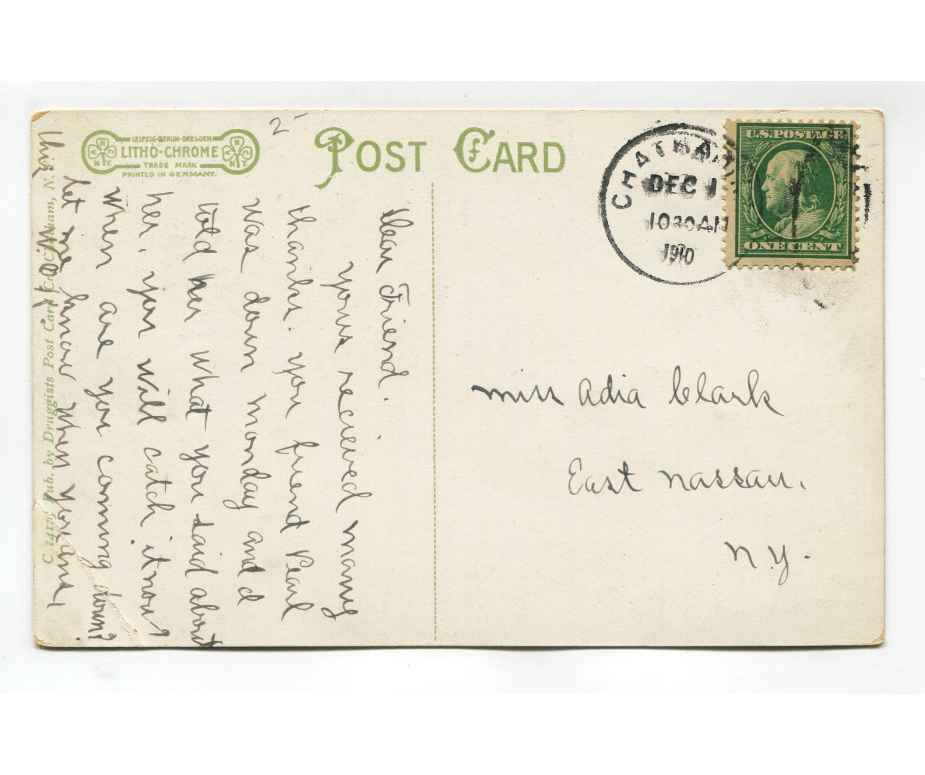 2-
LEIPZIG-BERLIN-DRESDEN
LITHO-CHROME
TRADE MARK
PRINTED IN GERMANY.
POST CARD
CHATHAM
DEC 1
1030AM
1910
U.S. POSTAGE
ONE CENT
Dear Friend.
yours recieved many
thanks. you friend Pearl
was down monday and
told her what you said about
her. you will catch it now?
when are you coming down?
let me know when you
C 1412 Pub. by Druggists Post Card Co. Chatham, N.
miss Adia Clark
East Nassau.
N.Y.